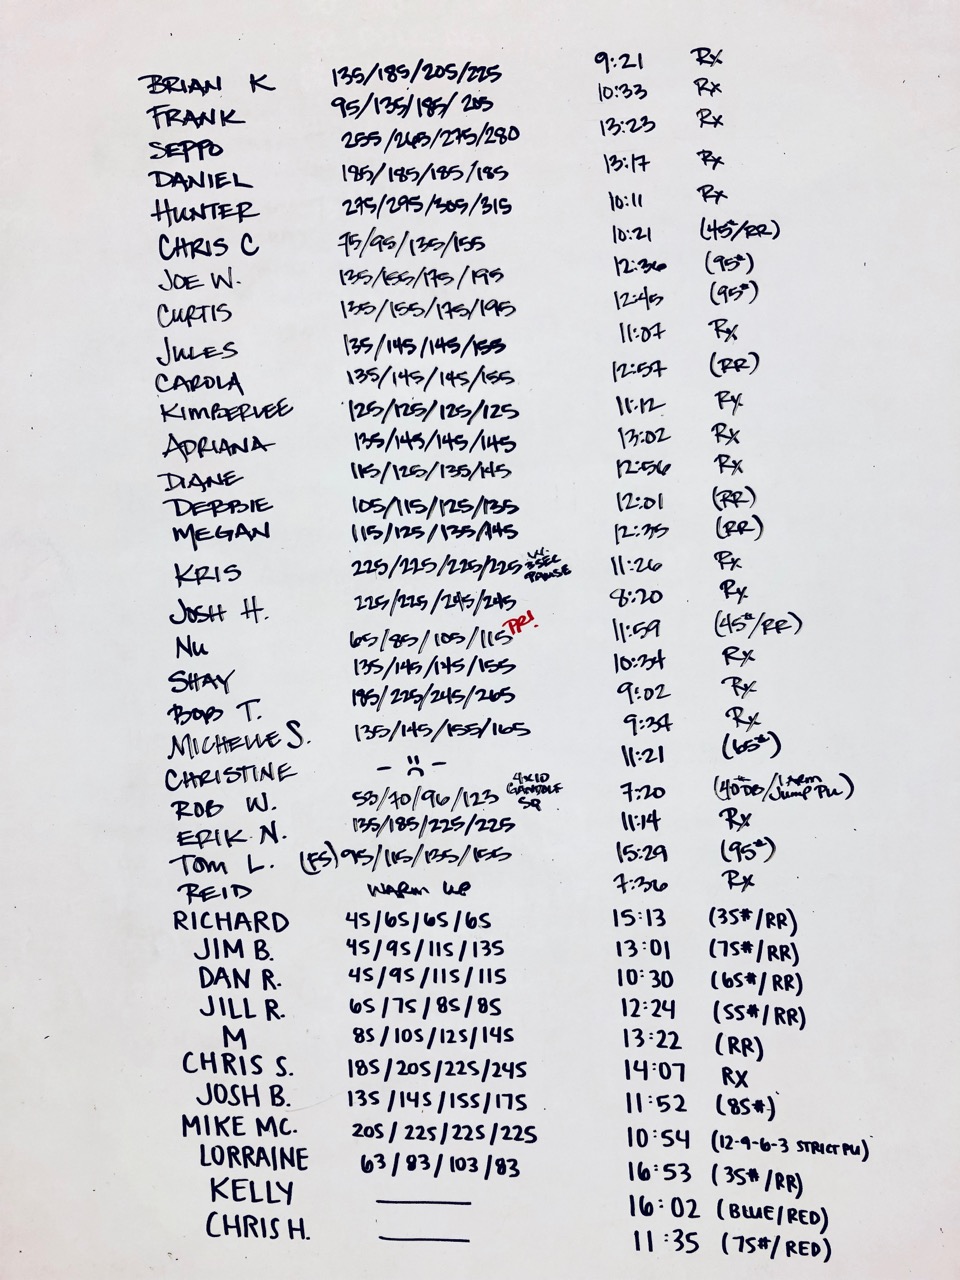 BRIAN K 135/185/205/225 9:21 Rx
FRANK 95/135/185/205 10:33 Rx
SEPPO 255/265/275/280 13:23 Rx
DANIEL 185/185/185/185 13:17 Rx
HUNTER 275/295/305/315 10:11 Rx
CHRIS C 75/95/135/155 10:21 (45/RR)
JOE W. 135/155/175/195 12:36 (95#)
CURTIS 135/155/175/195 12:45 (95#)
JULES 135/145/145/155 11:07 Rx
CAROLA 135/145/145/155 12:57 (RR)
KIMBERLEE 125/125/125/125 11:12 Rx
ADRIANA 135/145/145/145 13:02 Rx
DIANE 115/125/135/145 12:56 Rx
DEBBIE 105/115/125/135 12:01 (RR)
MEGAN 115/125/135/145 12:35 (RR)
KRIS 225/225/225/225 W. 3SEC PAUSE 11:26 Rx
JOSH H. 225/225/245/245 8:20 Rx
NU 65/85/105/115 PR! 11:59 (45#/RR)
SHAY 135/145/145/155 10:34 Rx
BOB T. 185/225/245/265 9:02 Rx
MICHELLE S. 135/145/155/165 9:34 Rx
CHRISTINE - - 11:21 (65#)
ROB W. 53/70/96/123 4x10 SQ 7:20 (40#DB/1 ARM Jump PU)
ERIK N. 135/185/225/225 11:14 Rx
TOM L. (FS) 95/115/135/155 15:29 (95#)
REID WARM UP 7:36 Rx
RICHARD 45/65/65/65 15:13 (35#/RR)
JIM B. 45/95/115/135 13:01 (75#/RR)
DAN R. 45/95/115/115 10:30 (65#/RR)
JILL R. 65/75/85/85 12:24 (55#/RR)
M 85/105/125/145 13:22 (RR)
CHRIS S. 185/205/225/245 14:07 RX
JOSH B. 135/145/155/175 11:52 (85#)
MIKE MC. 205/225/225/225 10:54 (12-9-6-3 STRICT PU)
LORRAINE 63/83/103/83 16:53 (35#/RR)
KELLY 16:02 (BLUE/RED)
CHRIS H. 11:35 (75#/RED)